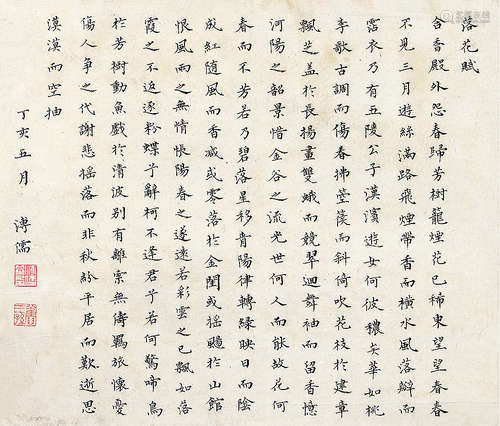 落花賦
含香殿外怨春歸芳樹籠煙花已稀東望望春春
不見三月遊絲滿路飛煙帶香而橫水風落瓣而
霑衣乃有五陵公子漢濱遊女何彼穠矣華如桃
李歌古調而傷春拂箜篌而斜倚吹花技於建章
飄芝蓋於長楊畫雙蛾而競翠迴舞袖而留香憶
河陽之韻景惜金谷之流光世何人而能故花何
春而不芳若乃碧落星移青陽律轉綠映日而陰
成紅隨風而香減或零落於金閨或搖颺於山館
恨風雨之無情悵陽春之遂遠若彩雲之已飄如落
霞之不返逐粉蝶子辭柯不逢君子若何驚啼鳥
於芳樹動魚戲於清波別有離索無儔羈旅懷憂
傷人事之代謝悲搖落而非秋紛平居而歎逝思
漠漠而空抽
丁亥五月 溥儒